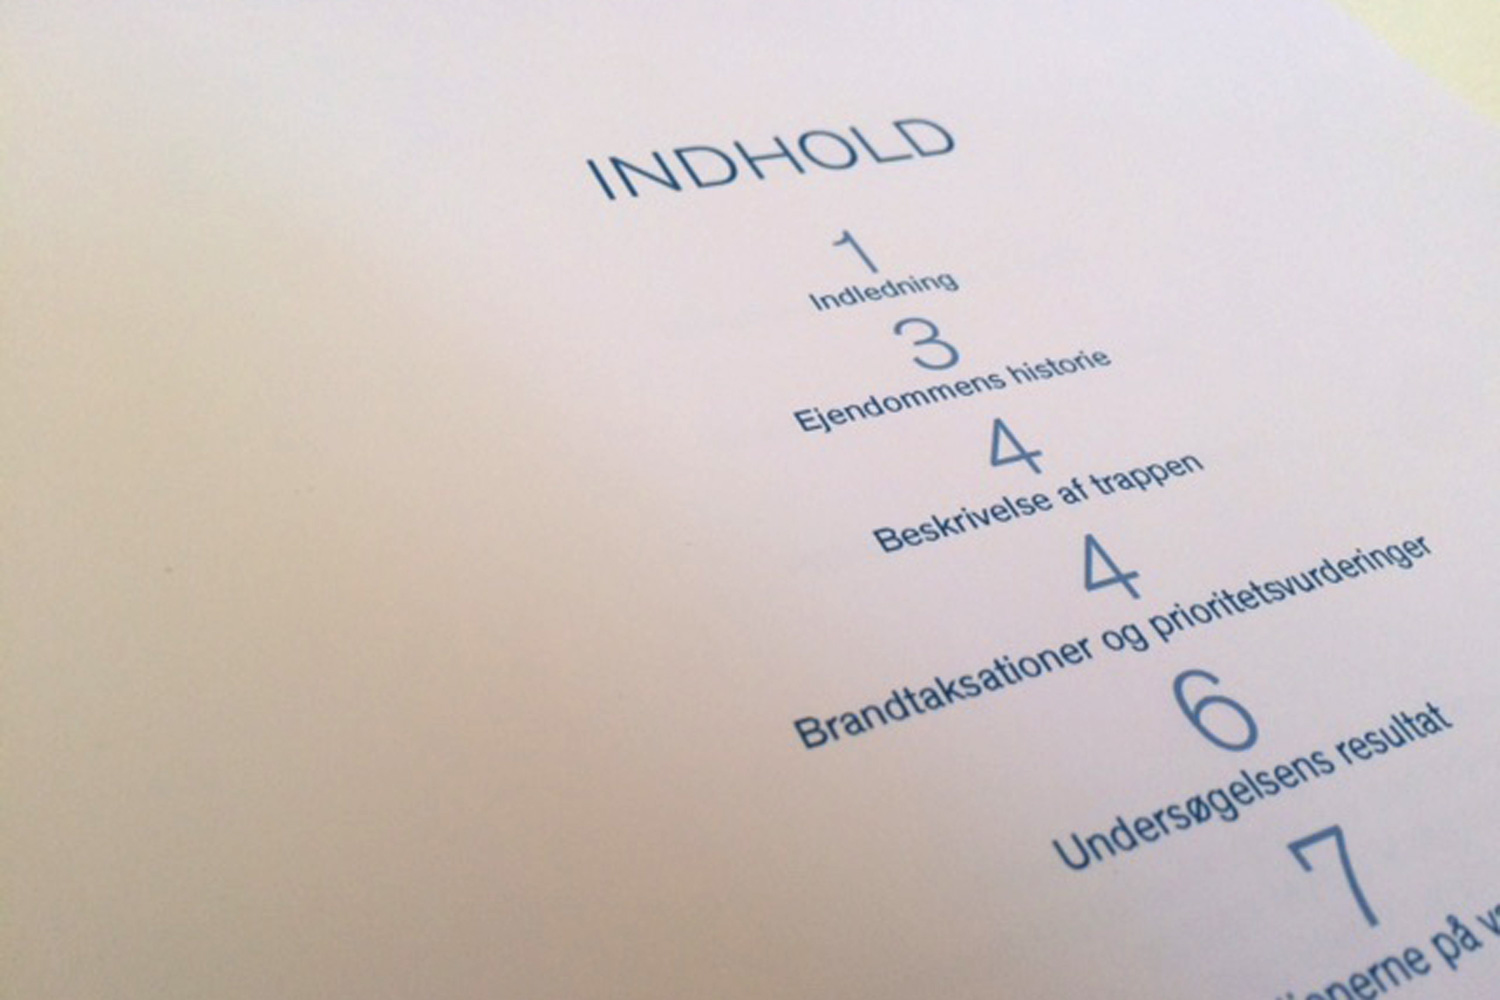 INDHOLD
1
Indledning
3
Ejendommens historie
4
Beskrivelse af trappen
4
Brandtaksationer og prioritetsvurderinger
6
Undersøgelsens resultat
7
på